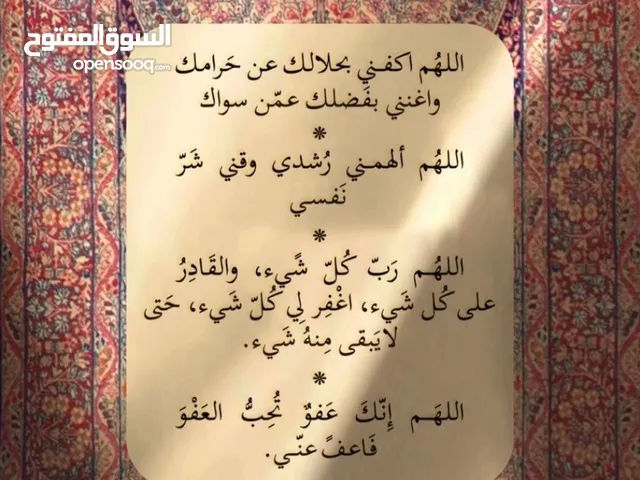 السوق المفتوح
opensooq.com
اللهُم اكفـني بحلالك عن حَرامك
واغنني بفَضلك عمّن سواك
*
اللهُم ألهمـني رُشدي وقني شَرّ
نَفسي
*
اللهُـم رَبّ كُلّ شًيء، والقَادِرُ
على كُل شَيء، اغْفِر لِي كُلّ شَيء، حَتى
لايَبقى مِنهُ شَيء.
*
اللهَـم إِنّكَ عَفوٌ تُحِبُّ العَفْوَ
فَاعفً عنّـي.